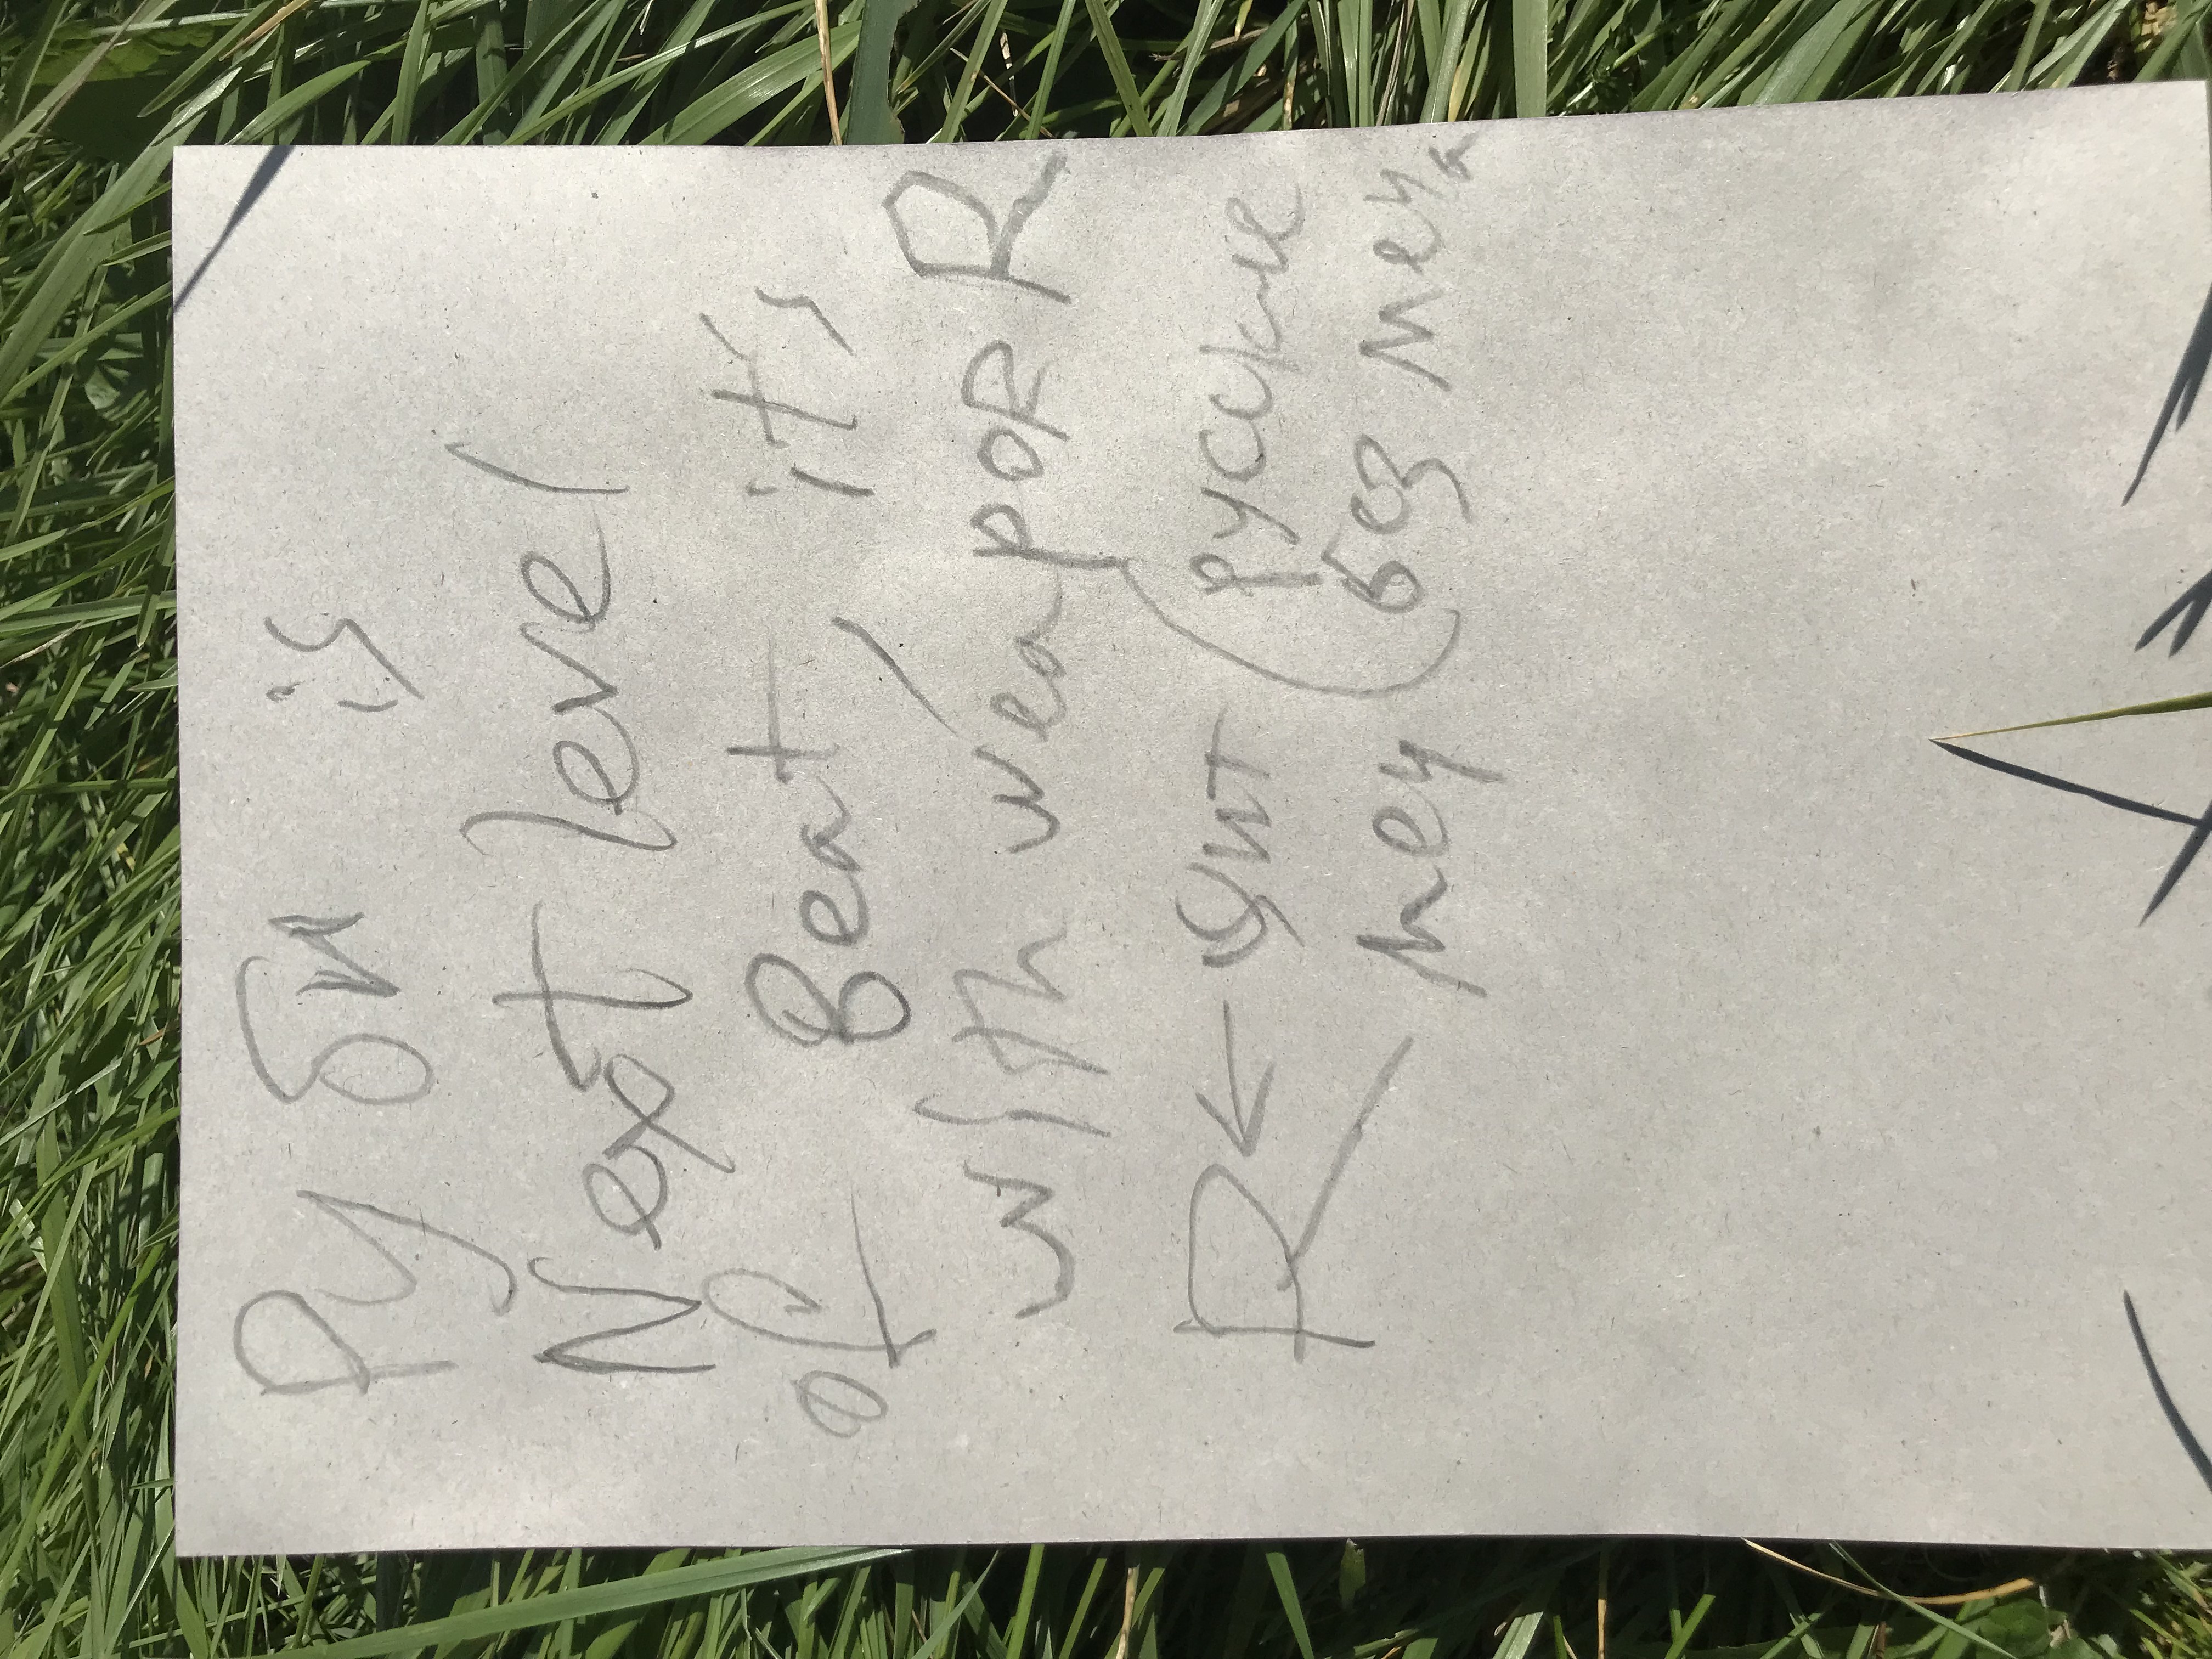 Руби is
Next level
of beat, it's
with weapoR R
R ← щит (русские
меч без меча